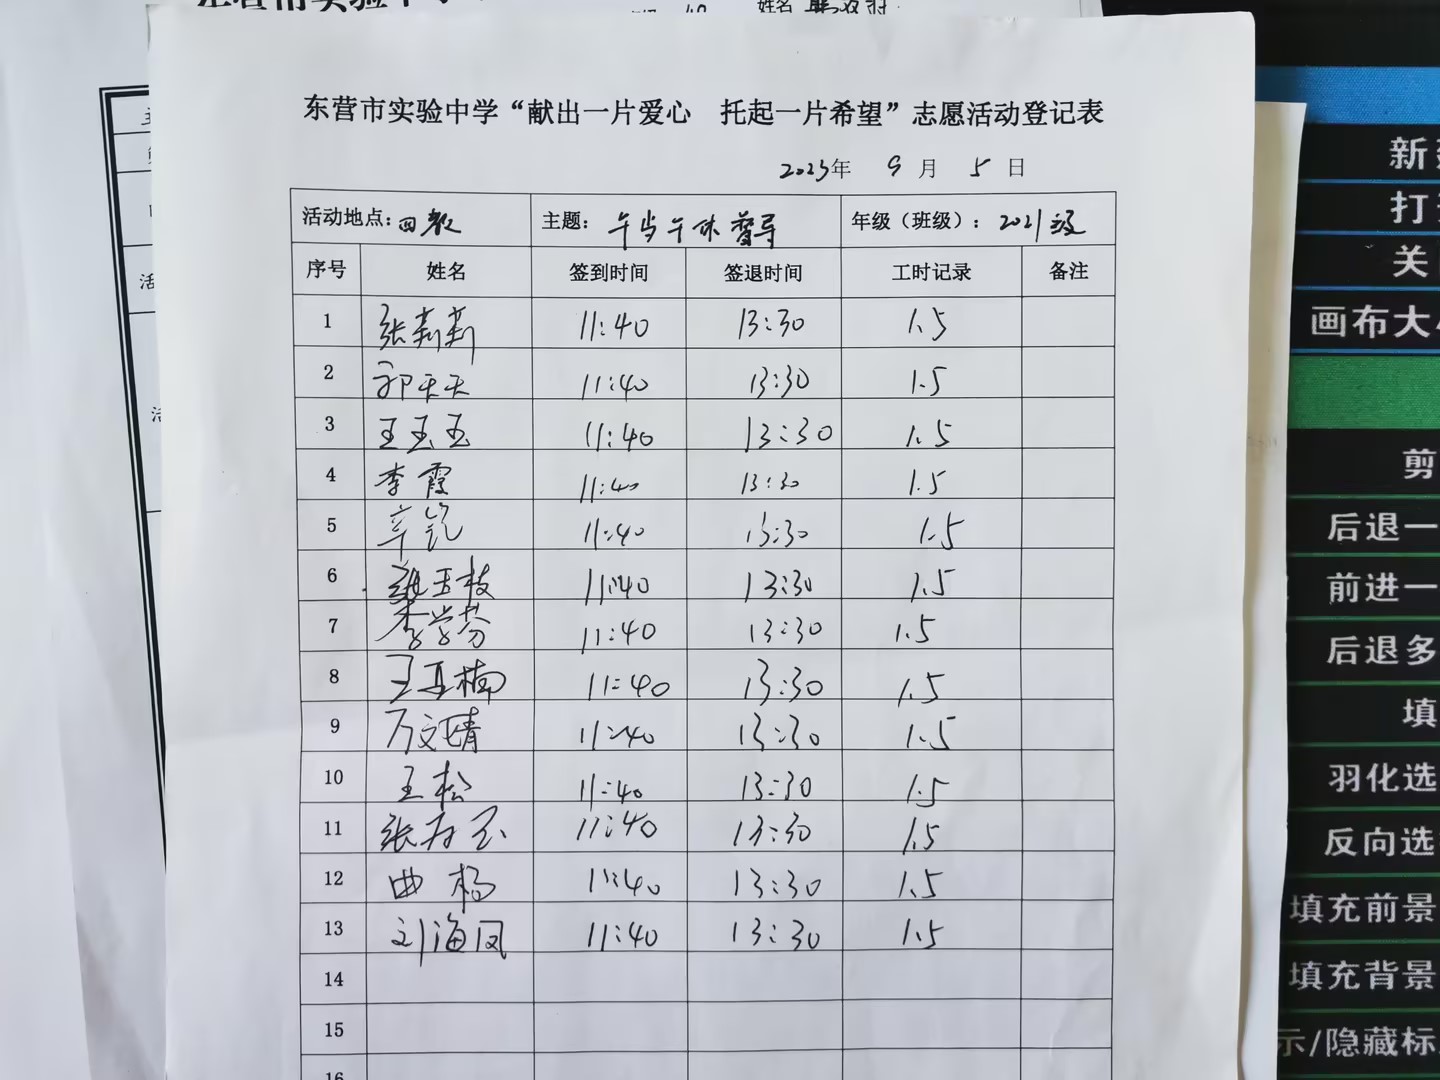 东营市实验中学“献出一片爱心 托起一片希望”志愿活动登记表
2023年 9 月 5 日
活动地点:四教 主题: 午当午休督导 年级（班级）: 2021级
序号 姓名 签到时间 签退时间 工时记录 备注
1 张莉莉 11:40 13:30 1.5
2 邵天天 11:40 13:30 1.5
3 王玉玉 11:40 13:30 1.5
4 李霞 11:40 13:30 1.5
5 11:40 13:30 1.5
6 玉枝 11:40 13:30 1.5
7 李学芬 11:40 13:30 1.5
8 王亚楠 11:40 13:30 1.5
9 万文晴 11:40 13:30 1.5
10 王松 11:40 13:30 1.5
11 张 11:40 13:30 1.5
12 曲杨 11:40 13:30 1.5
13 刘海凤 11:40 13:30 1.5
14
15
16
姓名
活
打
关
画布大
剪
后退一
前进一
后退多
填
羽化选
反向选
填充前景
填充背景
示/隐藏标
新